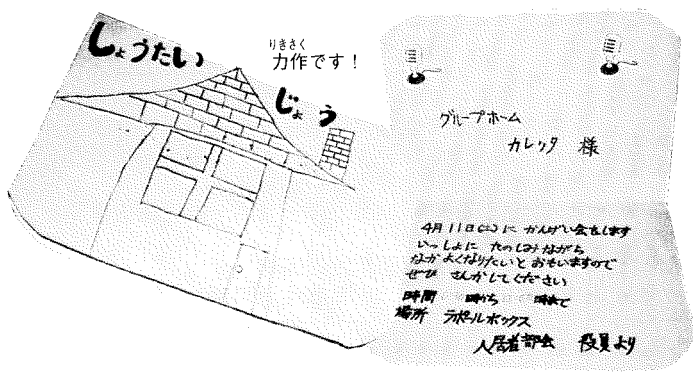 しょうたい
じょう
りきさく
力作です！
グループホーム
カレッタ 様
4月11日(土)に かんげい会をします
いっしょに たのしみながら
なかよくなりたいと おもいますので
ぜひ さんかしてください
時間 時から 時まで
場所 ラポールボックス
入居者部会 役員より